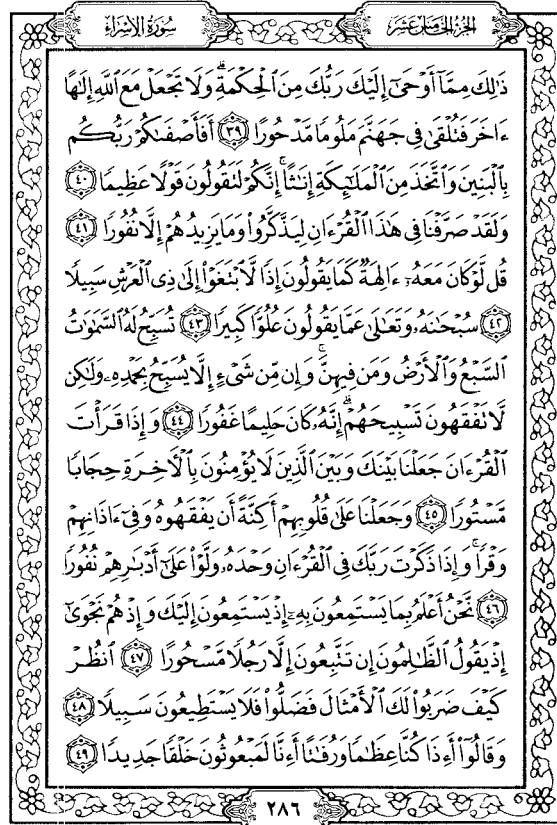 سُورَةُ الإِسْرَاءِ
الجُزْءُ الخَامِسَ عَشَرَ
ذَٰلِكَ مِمَّآ أَوْحَىٰٓ إِلَيْكَ رَبُّكَ مِنَ ٱلْحِكْمَةِۗ وَلَا تَجْعَلْ مَعَ ٱللَّهِ إِلَٰهًا
ءَاخَرَ فَتُلْقَىٰ فِى جَهَنَّمَ مَلُومًا مَّدْحُورًا ٣٩ أَفَأَصْفَىٰكُمْ رَبُّكُم
بِٱلْبَنِينَ وَٱتَّخَذَ مِنَ ٱلْمَلَٰٓئِكَةِ إِنَٰثًاۚ إِنَّكُمْ لَتَقُولُونَ قَوْلًا عَظِيمًا ٤٠
وَلَقَدْ صَرَّفْنَا فِى هَٰذَا ٱلْقُرْءَانِ لِيَذَّكَّرُوا۟ وَمَا يَزِيدُهُمْ إِلَّا نُفُورًا ٤١
قُل لَّوْ كَانَ مَعَهُۥٓ ءَالِهَةٌ كَمَا يَقُولُونَ إِذًا لَّٱبْتَغَوْا۟ إِلَىٰ ذِى ٱلْعَرْشِ سَبِيلًا
٤٢ سُبْحَٰنَهُۥ وَتَعَٰلَىٰ عَمَّا يَقُولُونَ عُلُوًّا كَبِيرًا ٤٣ تُسَبِّحُ لَهُ ٱلسَّمَٰوَٰتُ
ٱلسَّبْعُ وَٱلْأَرْضُ وَمَن فِيهِنَّۚ وَإِن مِّن شَىْءٍ إِلَّا يُسَبِّحُ بِحَمْدِهِۦ وَلَٰكِن
لَّا تَفْقَهُونَ تَسْبِيحَهُمْۗ إِنَّهُۥ كَانَ حَلِيمًا غَفُورًا ٤٤ وَإِذَا قَرَأْتَ
ٱلْقُرْءَانَ جَعَلْنَا بَيْنَكَ وَبَيْنَ ٱلَّذِينَ لَا يُؤْمِنُونَ بِٱلْءَاخِرَةِ حِجَابًا
مَّسْتُورًا ٤٥ وَجَعَلْنَا عَلَىٰ قُلُوبِهِمْ أَكِنَّةً أَن يَفْقَهُوهُ وَفِىٓ ءَاذَانِهِمْ
وَقْرًاۚ وَإِذَا ذَكَرْتَ رَبَّكَ فِى ٱلْقُرْءَانِ وَحْدَهُۥ وَلَّوْا۟ عَلَىٰٓ أَدْبَٰرِهِمْ نُفُورًا
٤٦ نَّحْنُ أَعْلَمُ بِمَا يَسْتَمِعُونَ بِهِۦٓ إِذْ يَسْتَمِعُونَ إِلَيْكَ وَإِذْ هُمْ نَجْوَىٰٓ
إِذْ يَقُولُ ٱلظَّٰلِمُونَ إِن تَتَّبِعُونَ إِلَّا رَجُلًا مَّسْحُورًا ٤٧ ٱنظُرْ
كَيْفَ ضَرَبُوا۟ لَكَ ٱلْأَمْثَالَ فَضَلُّوا۟ فَلَا يَسْتَطِيعُونَ سَبِيلًا ٤٨
وَقَالُوٓا۟ أَءِذَا كُنَّا عِظَٰمًا وَرُفَٰتًا أَءِنَّا لَمَبْعُوثُونَ خَلْقًا جَدِيدًا ٤٩
٢٨٦